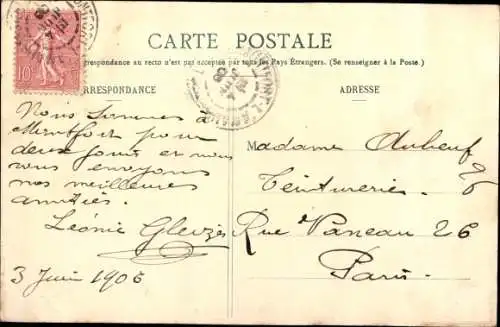 CARTE POSTALE
respondance au recto n'est pas acceptée par tous les Pays Étrangers. (Se renseigner à la Poste.)
RRESPONDANCE
ADRESSE
Nous sommes à
Montfort pour
deux jours et nous
vous envoyons
nos meilleures
amitiés.
Léonie
3 Juin 1906
Madame Aubeuf
Teinturerie.
Rue Vaneau 26
Paris.
10